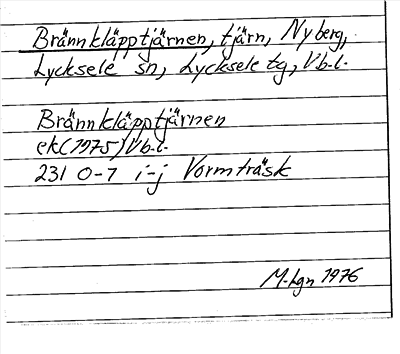 Brännkläpptjärnen, tjärn, Nyberg,
Lycksele sn, Lycksele tg, Vb.l.
Brännkläpptjärnen
ek(1975)Vb.l.
231 0-1 i-j Vormträsk
M-Lgn 1976